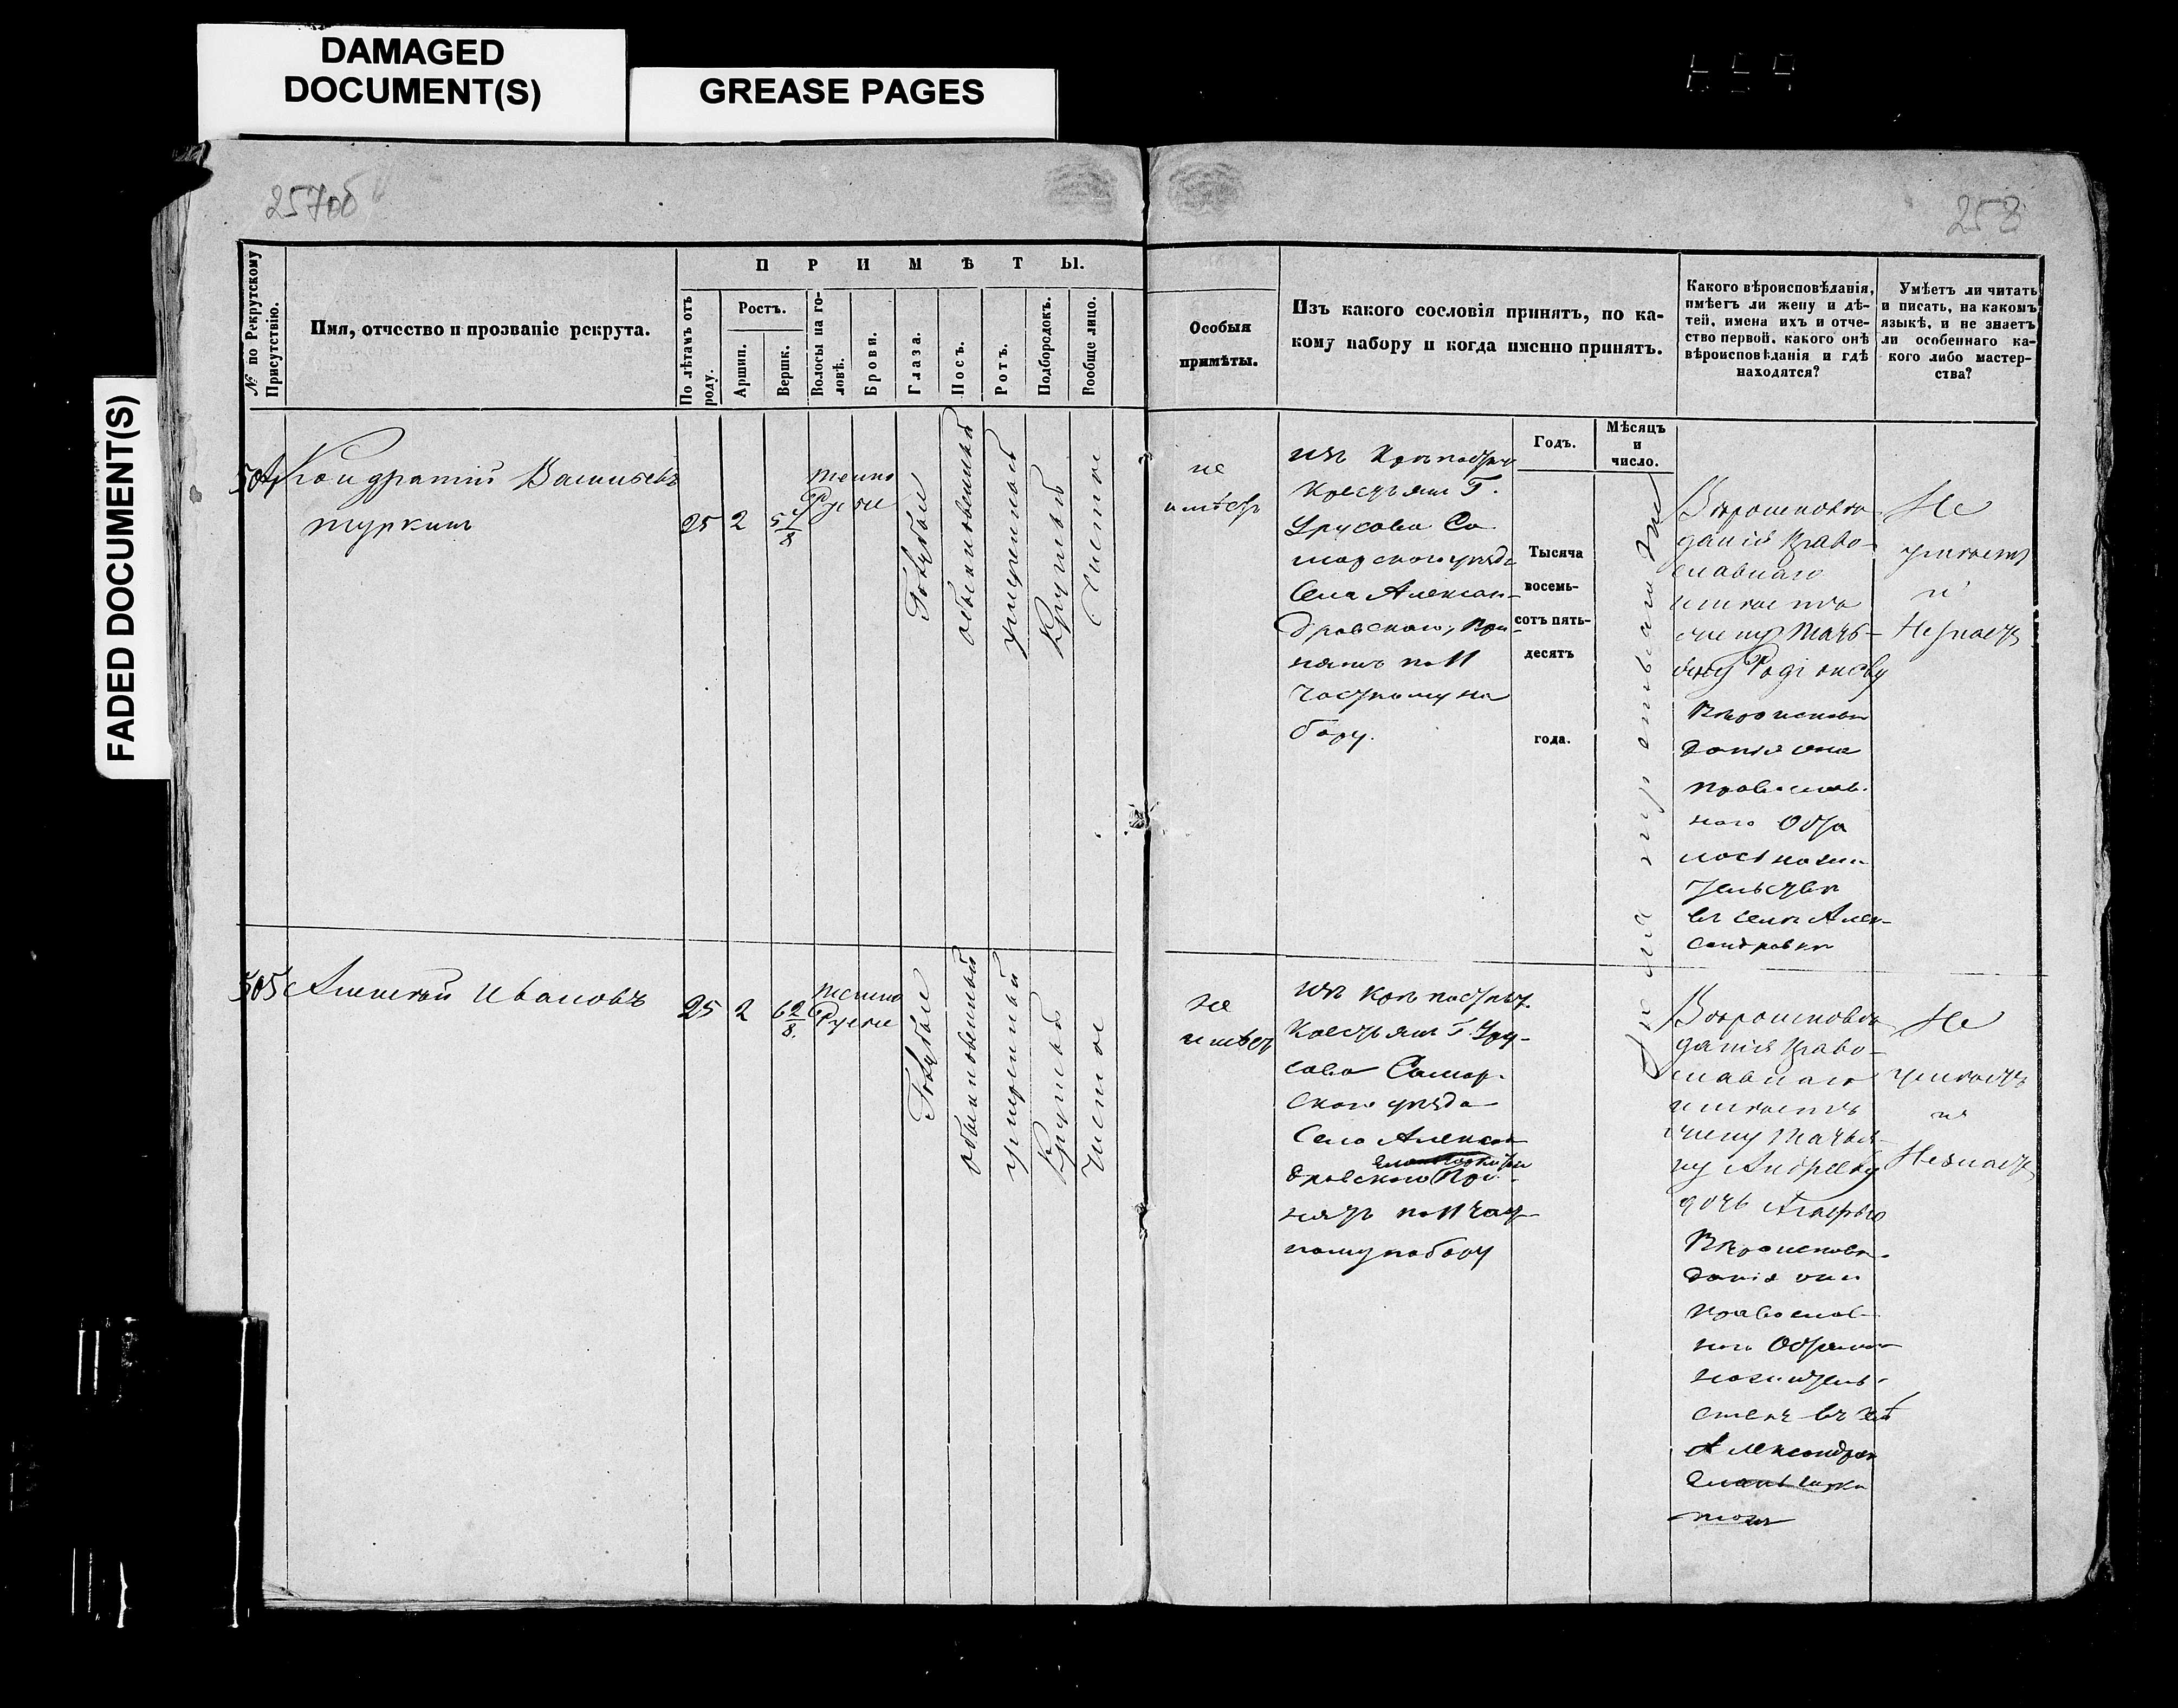 DAMAGED
DOCUMENT(S)
GREASE PAGES
FADED DOCUMENT(S)
257об
258
№ по Рекрутскому Присутствію.
Имя, отчество и прозваніе рекрута.
ПРИМѢТЫ.
По лѣтамъ отъ роду.
Ростъ.
Аршин.
Вершк.
Волосы на го-
ловѣ.
Брови.
Глаза.
Носъ.
Ротъ.
Подбородокъ.
Вообще лицо.
Особыя
примѣты.
Изъ какого сословія принятъ, по ка-
кому набору и когда именно принятъ.
Какого вѣроисповѣданія,
имѣетъ ли жену и дѣ-
тей, имена ихъ и отче-
ство первой, какого онѣ
вѣроисповѣданія и гдѣ
находятся?
Умѣетъ ли читать
и писать, на какомъ
языкѣ, и не знаетъ
ли особеннаго ка-
кого либо мастер-
ства?
Годъ.
Мѣсяцъ
и
число.
Тысяча
восемь-
сотъ пять-
десятъ
года.
504
Кондратій Васильевъ
Туркин
25
2
темно
Русые
Голубые
обыкновенный
умеренный
Круглый
Чистое
не
имѣетъ
изъ Крѣпостн
Крестьян Г.
Урусова Са
марского уѣзда
Села Алексан-
дровскаго, при-
нятъ по 11
Частному на
бору.
Вѣроисповѣ
данія Право-
славнаго
имѣетъ
жену Тать-
яну Родіонову
Вѣроисповѣ
данія она
православ
наго Оста
лось на жи
тельствѣ
въ селѣ Алек-
сандровкѣ
Не
умѣетъ
и
Незнаетъ
505
Алексѣй Ивановъ
25
2
6 2/8.
темно
Русые
Голубые
обыкновенный
умеренный
Круглый
Чистое
не
имѣетъ
изъ Крѣпостных
Крестьян Г. Уру-
сова Самар-
скаго уѣзда
Села Алексан
дровскаго При-
нятъ по 11 част
ному набору
Вѣроисповѣ
данія Право-
славнаго
имѣетъ
жену Татья-
ну Андрееву
дочь
Вѣроисповѣ-
данія они
православ-
наго Остались
на жітель-
Александров
Не
умѣетъ
и
Незнаетъ